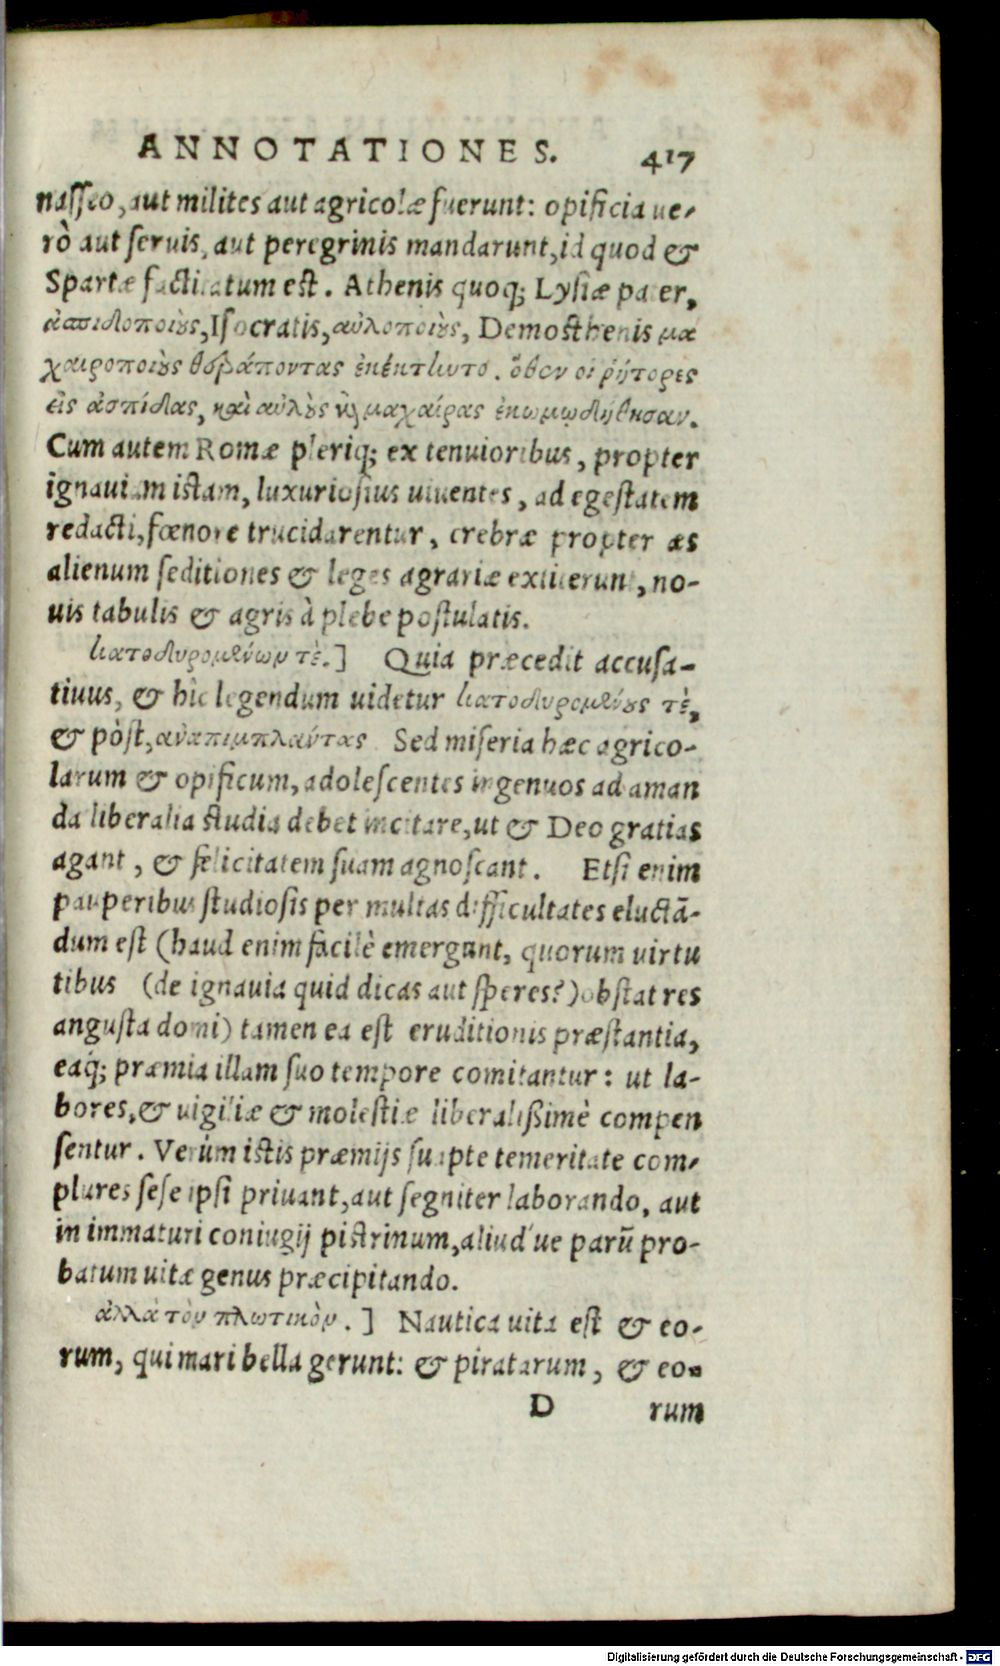 ANNOTATIONES. 417
nasseo, aut milites aut agricolæ fuerunt: opificia ue-
rò aut seruis, aut peregrinis mandarunt, id quod &
Spartæ factitatum est. Athenis quoq; Lysiæ pater,
ἀσπιδοποιȣ̀ς, Isocratis, αὐλοποιȣ̀ς, Demosthenis μα
χαιροποιȣ̀ς θεράποντας ἐκέκτηντο. ὅθεν οἱ ῥήτορες
εἰς ἀσπίδας, καὶ αὐλȣ̀ς κὶ μαχαίρας ἐκωμῳδήθησαν.
Cum autem Romæ pleriq; ex tenuioribus, propter
ignauiam istam, luxuriosius uiuentes, ad egestatem
redacti, fœnore trucidarentur, crebræ propter æs
alienum seditiones & leges agrariæ extiterunt, no-
uis tabulis & agris à plebe postulatis.
κατοδυρομένων τὲ.] Quia præcedit accusa-
tiuus, & hîc legendum uidetur κατοδυρομένȣς τὲ,
& pòst, ἀναπιμπλαντας Sed miseria hæc agrico-
larum & opificum, adolescentes ingenuos ad aman
da liberalia studia debet incitare, ut & Deo gratias
agant, & felicitatem suam agnoscant. Etsi enim
pauperibus studiosis per multas difficultates eluctā-
dum est (haud enim facilè emergunt, quorum virtu
tibus (de ignauia quid dicas aut speres?) obstat res
angusta domi) tamen ea est eruditionis præstantia,
eaq́; præmia illam suo tempore comitantur: ut la-
bores, & uigiliæ & molestiæ liberalißimè compen
sentur. Verùm istis præmijs suapte temeritate com-
plures sese ipsi priuant, aut segniter laborando, aut
in immaturi coniugij pistrinum, aliud ́ue parū pro-
batum uitæ genus præcipitando.
ἀλλὰ τὸν πλωτικὸν.] Nautica uita est & eo-
rum, qui mari bella gerunt: & piratarum, & eo-
D rum
Digitalisierung gefördert durch die Deutsche Forschungsgemeinschaft - DFG